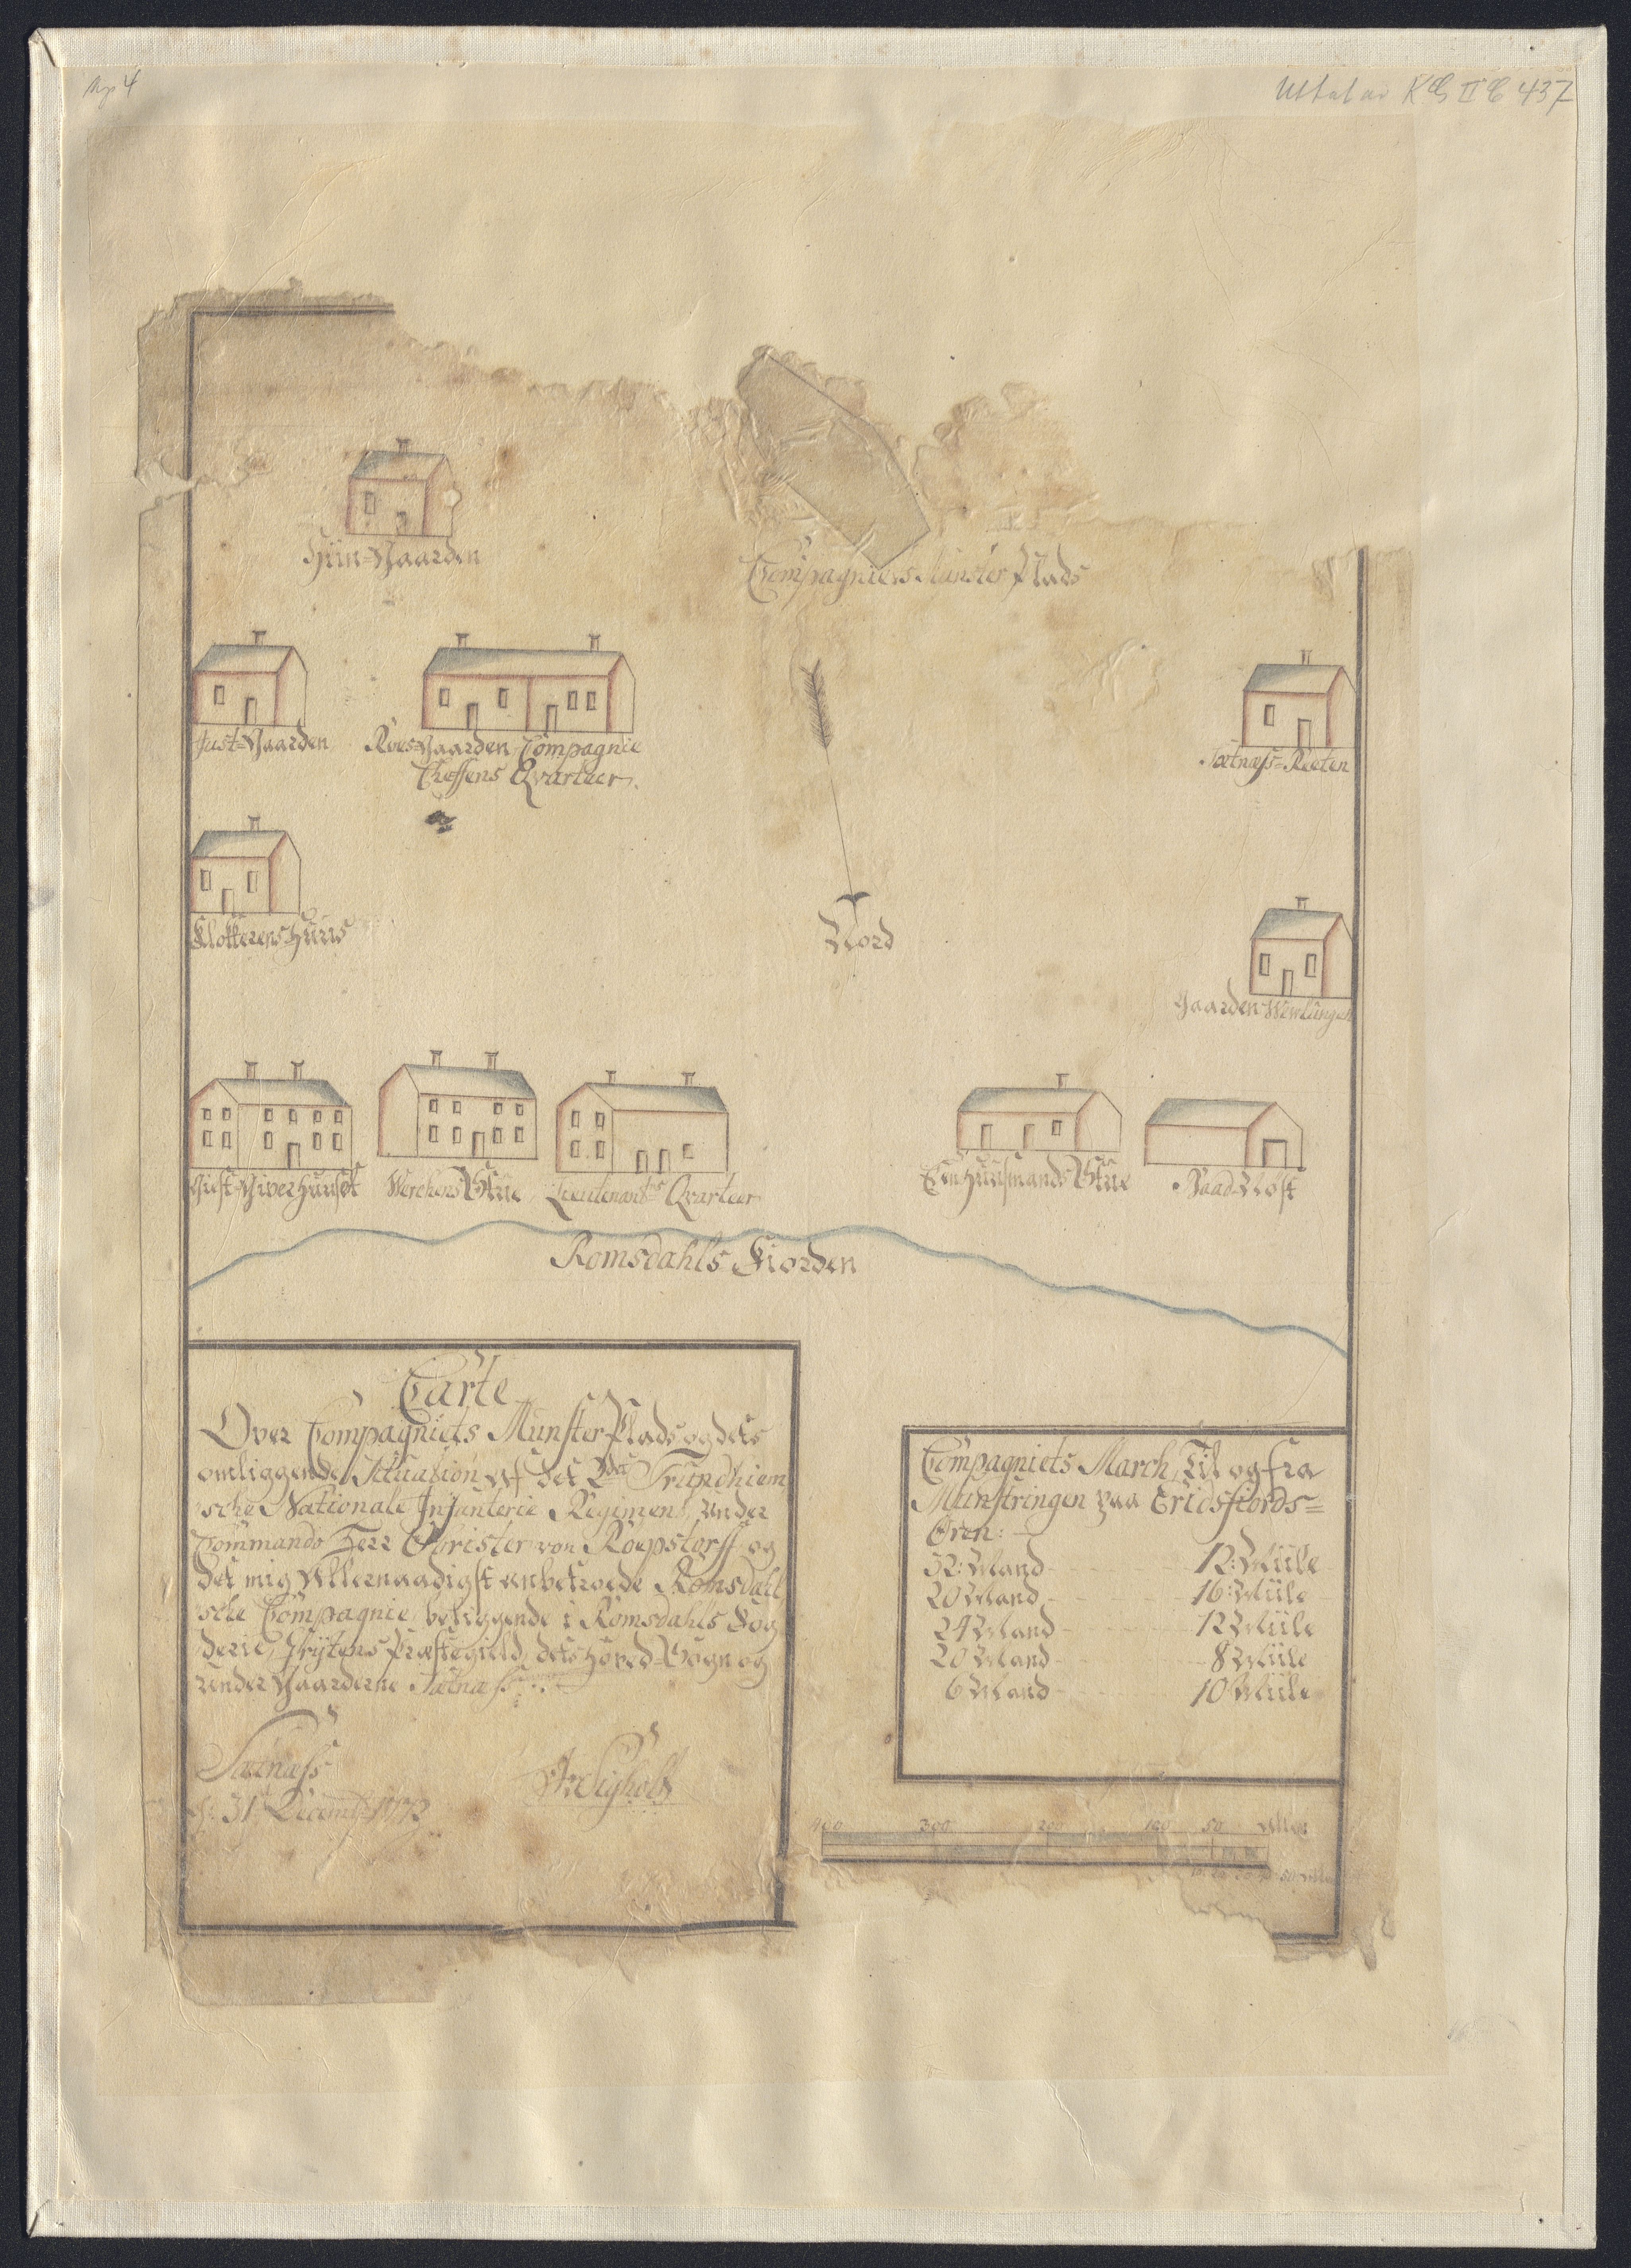 Uttat av KG II E 437
Hiin-Gaarden
Compagniets Munster Plads
Just-Gaarden
Roes-Gaarden Compagnie
Cheffens Qvarteer.
Sætnæss-Reeten
Klokkerens Huus
Nord
Gaarden
Giest-Giver Huuset
Stue
Lieutenants Qvarteer
Een Huusmands Stue
Naad-Nost
Romsdahls Fiorden
Carte
Over Compagniets Munster-Plads og dets
omliggende Situation af det 2det Trundhiem
sche Nationale Infanterie Regiment, under
Commando Herr Obrister von Roepstorff og
det mig Allernaadigst anbetroede Romsdahl
sche Compagnie, beliggende i Romsdahls Fog
derie, Grytens Præstegield, dets Hoved-Sogn og
under Gaarderne Sætnæss
Sætnæss
d: 31 Decemb: 1773
Compagniets March, Til og fra
Munstringen paa Eridsfiords=
Øren:
32: Mand 12: Miile
20 Mand 16: Miile
24 Mand 12 Miile
20 Mand 8 Miile
6 Mand 10 Miile
400 300 200 100 50 Allen